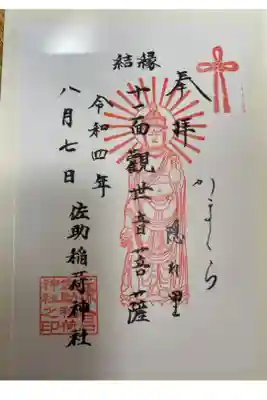 かまくら
奉拝
隠れ里
結縁
十一面觀世音菩薩
令和四年
八月七日
佐助稲荷神社
佐助稲荷
神社之印